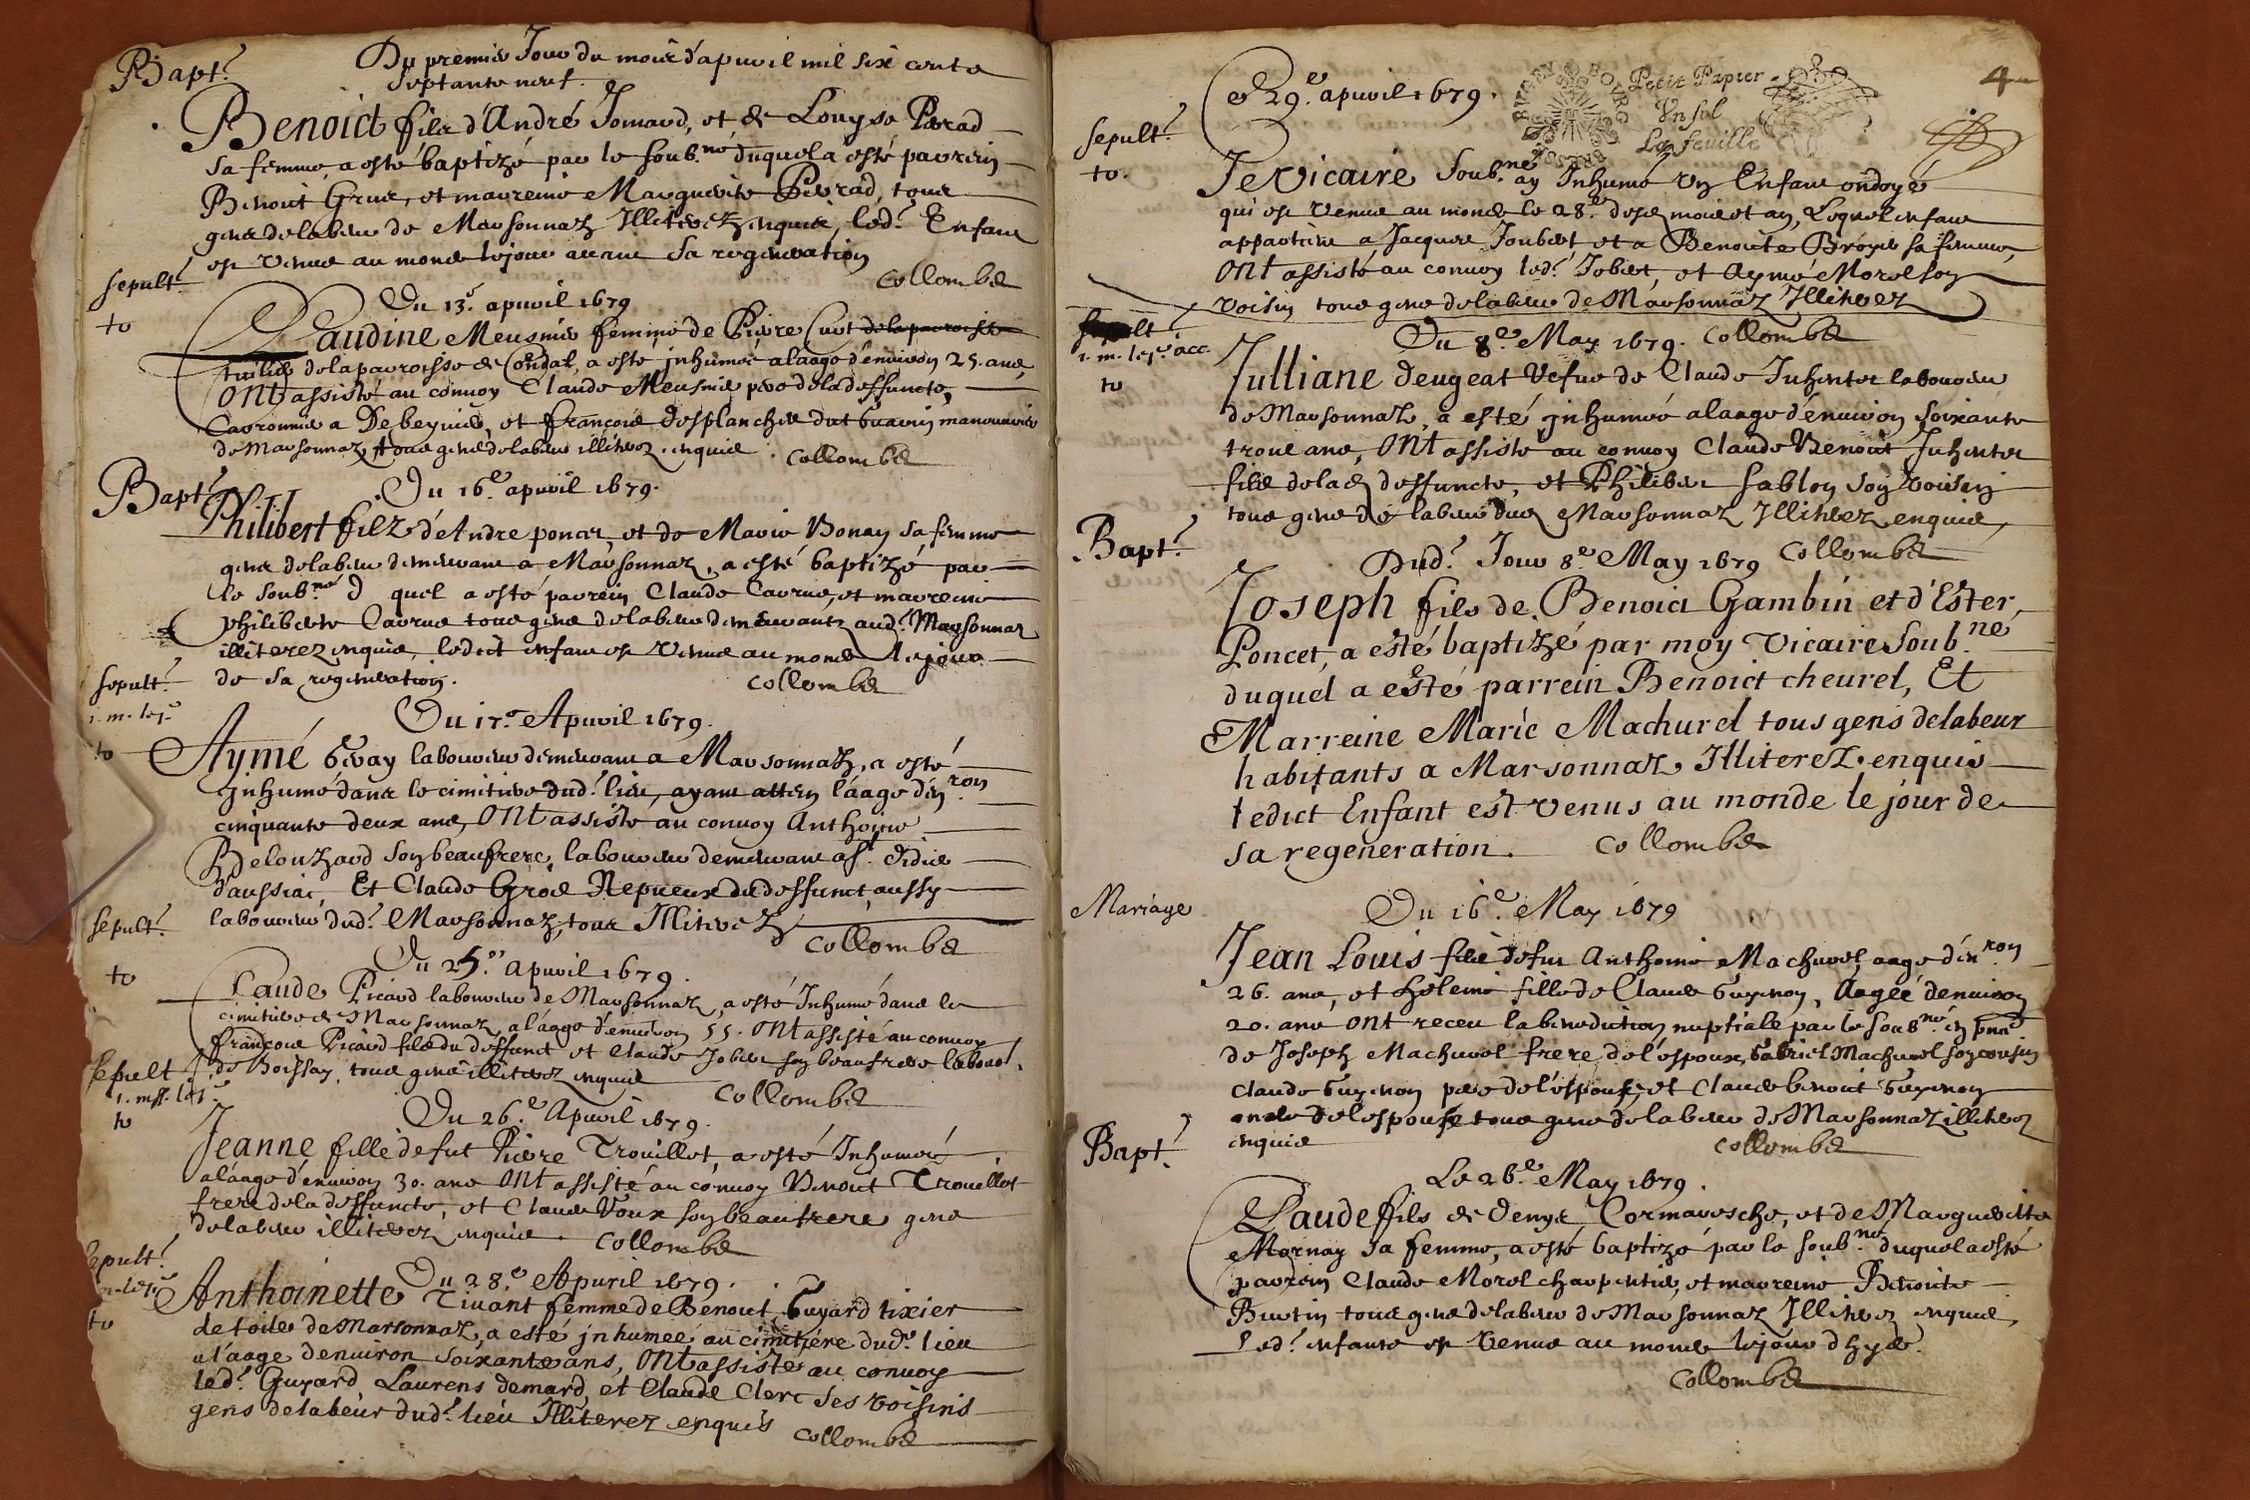 Bapt.
Du premier Jour du mois d'apuril mil six cents
septante neuf.
Benoict fils d'André Jomard, et de Louyse Perad
sa femme, a esté baptizé par le soub.né duquel a esté parrein
Benoist Gras, et marreine Marguerite Perrad, tous
gens de labeur de Marsonnaz Illiterez enquis, led. Enfant
est venus au monde le jour auant sa regeneration
Collombe
sepult.
to
Du 13.e apuril 1679
Claudine Meusnier femme de Pierre Cuot de la parroisse
tuilier de la parroisse de Condal, a esté jnhumée a laage d'enuiron 25. ans,
Ont assisté au conuoy Claude Meusnier pere de la deffuncte,
de Marsonnaz tous gens de labeur illiterez enquis. Collombe
Bapt.
Du 16.e apuril 1679.
Philibert filz d'Andre poncet, et de Marie Bonay sa femme
gens de labeur demeurant a Marsonnaz, a esté baptizé par
le soub.né d quel a esté parrein Claude Carrue, et marreine
philiberte Carrue tous gens de labeur demeurants aud. Marsonnaz
illiterez enquis, ledict enfant est venus au monde le jour
de sa regeneration.
Collombe
sepult.
to
Du 17.e Apuril 1679.
Aymé Geray laboureur demeurant a Marsonnaz, a esté
jnhumé dans le cimitiere dud. lieu, ayant attein l'áage d'en.ron
cinquante deux ans, Ont assisté au conuoy Anthoine
Belouzard son beaufrere, laboureur demeurant a s.t didier
d'aussiac, Et Claude Gros Nepueux du deffunct, aussy
laboureur dud. Marsonnaz, tous Illiterez
Collombe
sepult.
to
Du 25.e apuril 1679.
Claude Picard laboureur de Marsonnaz, a esté Inhumé dans le
cimitiere de Marsonnaz, a l'áage d'enuiron 55. Ont assisté au conuoy
françois Picard fils du deffunct et Claude Jobert son beaufrere labour.
de Boissay, tous gens illiterez enquis
Collombe
sepult
to
Du 26.e Apuril 1679.
Jeanne fille de fut Pierre Trouillet, a esté Inhumée
a láage d'enuiron 30. ans Ont assisté au conuoy Benoist Trouillet
frere de la deffuncte, et Claude Voux son beaufrere gens
de labeur illiterez enquis. Collombe
sepult.
to
Du 28.e Apuril 1679.
Anthoinette Tiuant femme de Benoist Guyard tixier
de toiles de Marsonnaz, a esté jnhumée au cimitiere dud. lieu
a l'aage denuiron soixante ans, Ont assisté au conuoy
led. Guyard Laurens demard, et Claude Clerc ses voisins
gens de labeur dud. lieu Illiterez enquis
Collombe
4
Petit Papier
Vn sol
La feuille
sepult.
to.
Ce 29.e apuril 1679.
Je Vicaire Soub.né ay Inhumé vn Enfant ondoyé
qui est venus au monde le 28.e desd. mois et an, Lequel enfant
appartient a Jacques Joubert et a Benoiste Broyer sa femme,
Ont assisté au conuoy led. Jobert, et Aymé Morel son
voisin tous gens de labeur de Marsonnaz Illiterez
Collombe
sepult
to
Du 8.e May 1679.
Julliane deugeat Vefue de Claude Juhenter laboureur
de Marsonnaz, a esté jnhumée a laage d'enuiron soixante
trois ans, Ont assisté au conuoy Claude Benoist Juhenter
fils de lad. deffuncte, et Philibert Sablon son voisin
tous gens de labeur dud. Marsonnaz Illiterez enquis,
Collombe
Bapt.
Dud. Jour 8.e May 1679
Joseph fils de Benoict Gambin et d'Ester
Poncet, a esté baptizé par moy Vicaire Soub.né
duquel a esté parrein Benoict cheurel, Et
Marreine Marie Machurel tous gens delabeur
habitants a Marsonnaz Illiterez. enquis
ledict Enfant est venus au monde le jour de
sa regeneration. Collombe
Mariage
Du 16.e May 1679
Jean Louis fils de fut Anthoine Machurel, aage d'en.ron
26. ans, et Heleine fille de Claude Guyenon, Aagée denuiron
20. ans Ont receu la benediction nuptiale par le soub.né en pnce
de Joseph Machurel frere de l'espoux, Gabriel Machurel son cousin
Claude Guyenon pere de l'espouse, et Claude benoist Guyenon
oncle de lespouse tous gens de labeur de Marsonnaz illiterez
enquis
Collombe
Bapt.
Le 26.e May 1679.
Claude fils de Denys Cormaresche, et de Marguerite
Mornay sa femme, a esté baptizé par le soub.né duquel a esté
parrein Claude Morel charpentier, et marreine Benoiste
Burtin tous gens de labeur de Marsonnaz Illiterez enquis,
Led. enfant est venus au monde le jour d'hyer.
Collombe